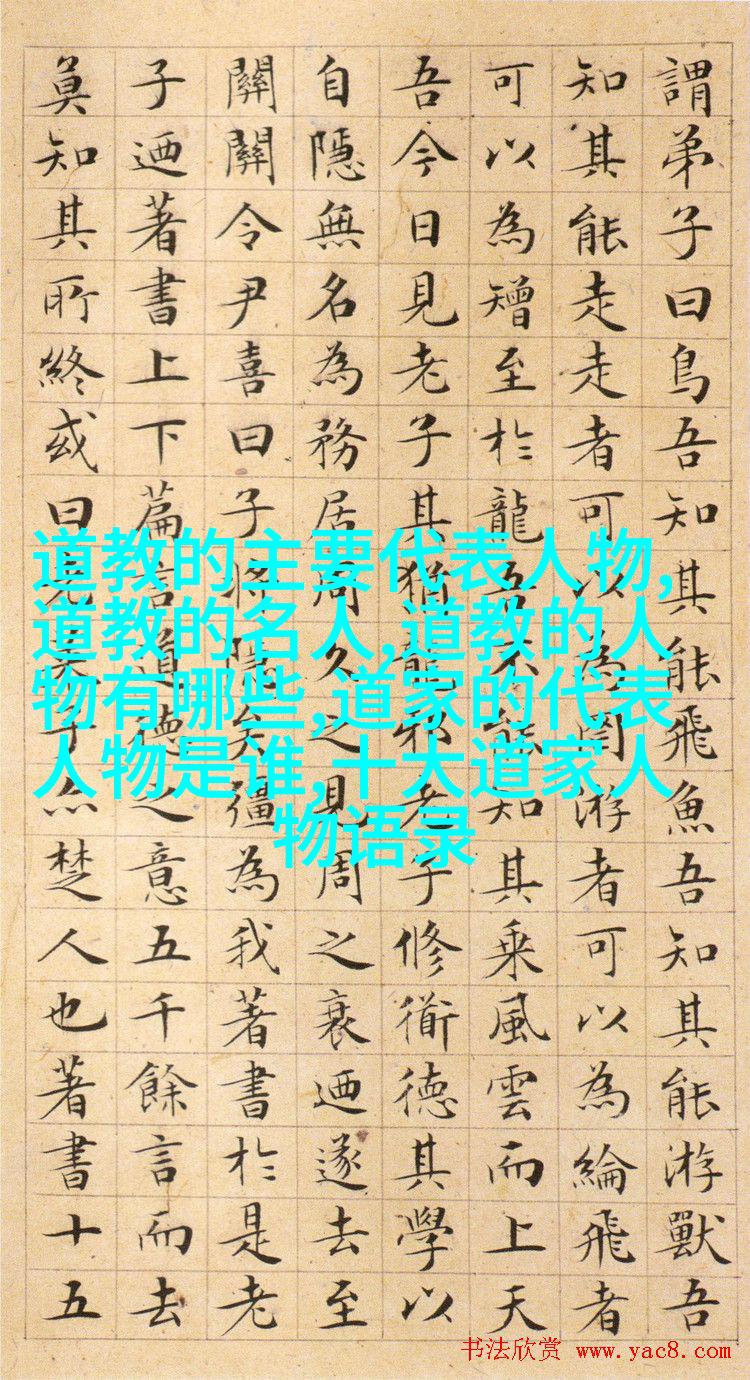 謂弟子曰鳥吾知其能飛魚吾知其能游獸吾
知其能走走者可以為罔游者可以為綸飛者
可以為矰至於龍吾不能知其乘風雲而上天
吾今日見老子其猶龍邪老子修衜德其學以
自隱無名為務居周久之見周之衰迺遂去至
關關令尹喜曰子將隱矣彊為我著書於是老
子迺著書上下篇言道德之意五千餘言而去
莫知其所終或曰老萊子亦楚人也著書十五
道教的主要代表人物,
道教的名人,道教的人
物有哪些,道家的代表
人物是谁,十大道家人
物语录
书法欣赏 www.yac8.com